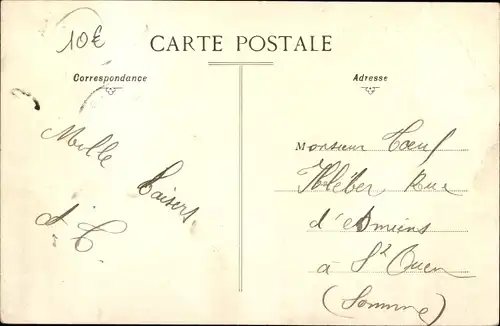 10€
CARTE POSTALE
Correspondance
Adresse
Mille
Baisers
Monsieur
Kléber, Rue
d'Amiens
à St Ouen
(Somme)